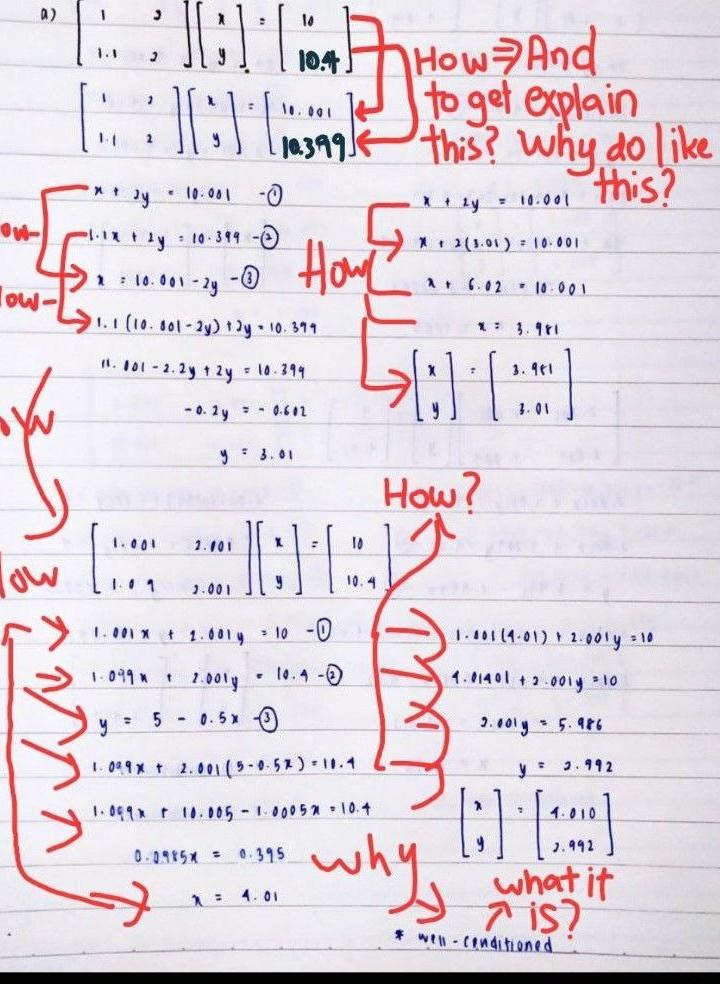 a) [ 1 2 ] [ x ] = [ 10 ]
[ 1.1 2 ] [ y ] [ 10.4 ]
How ⇒ And
to get explain
this? Why do like
this?
[ 1 2 ] [ x ] = [ 10.001 ]
[ 1.1 2 ] [ y ] [ 10.399 ]
x + 2y = 10.001 - ①
1.1x + 2y = 10.399 - ②
x = 10.001 - 2y - ③
1.1 (10.001 - 2y) + 2y = 10.399
11.001 - 2.2y + 2y = 10.399
-0.2y = -0.602
y = 3.01
How
x + 2y = 10.001
x + 2(3.01) = 10.001
x + 6.02 = 10.001
x = 3.981
[ x ] = [ 3.981 ]
[ y ] [ 3.01 ]
How?
[ 1.001 2.001 ] [ x ] = [ 10 ]
[ 1.09 2.001 ] [ y ] [ 10.4 ]
1.001x + 2.001y = 10 - ①
1.099x + 2.001y = 10.4 - ②
y = 5 - 0.5x - ③
1.099x + 2.001(5-0.5x) = 10.4
1.099x + 10.005 - 1.0005x = 10.4
0.0985x = 0.395
x = 4.01
1.001(4.01) + 2.001y = 10
4.01401 + 2.001y = 10
2.001y = 5.986
y = 2.992
[ x ] = [ 4.010 ]
[ y ] [ 2.992 ]
why
what it
is?
* well-conditioned